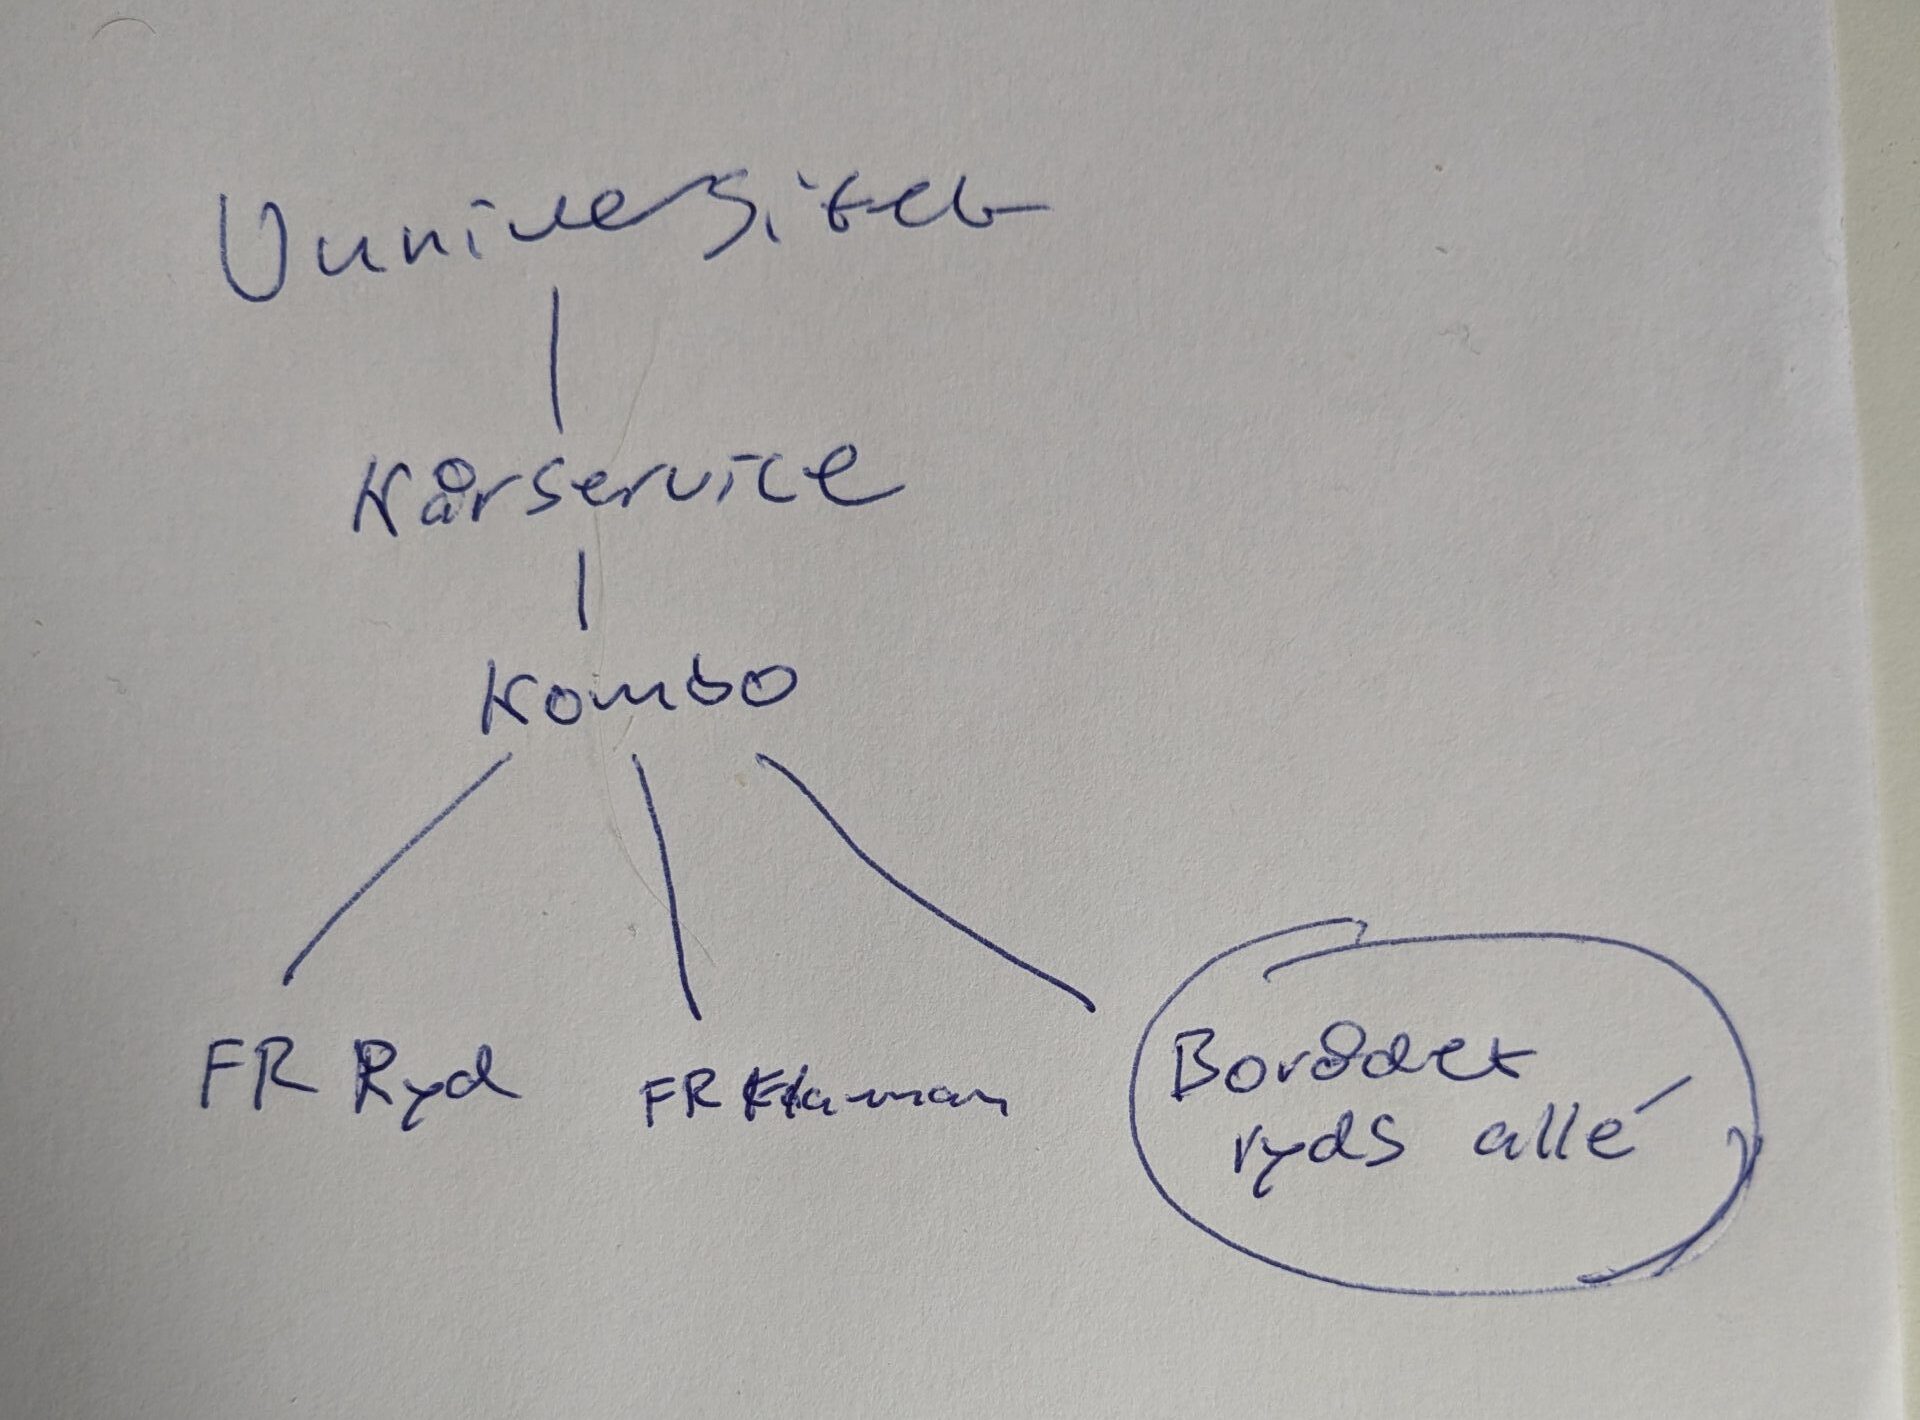 Uuniversitet
Kårservice
Kombo
FR Ryd
FR
Bordet
ryds allé